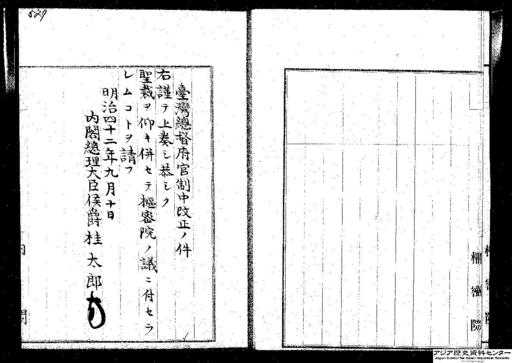 529
臺灣總督府官制中改正ノ件
右謹テ上奏シ恭シク
聖裁ヲ仰キ併セテ樞密院ノ議ニ付セラ
レムコトヲ請フ
明治四十二年九月十日
内閣總理大臣侯爵桂太郎
樞密院
アジア歴史資料センター
Japan Center for Asian Historical Records